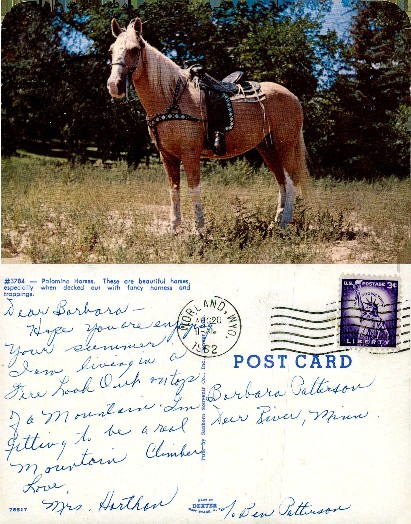 #3784 — Palomino Horses. These are beautiful horses,
especially when decked out with fancy harness and
trappings.
Dear Barbara —
Hope you are enjoy
your summer
I am living in a
Fire Look Out on top
of a Mountain. Im
getting to be a real
Mountain Climber
Love
Mrs. Harthan
78517
MORLAND, WYO.
1962
U.S. POSTAGE 3¢
LIBERTY
POST CARD
Barbara Patterson
Deer River, Minn.
% Ben Patterson
MADE BY
DEXTER